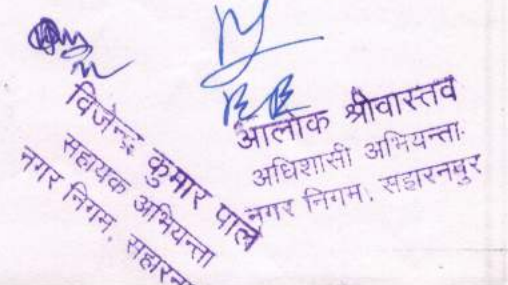 विजेन्द्र कुमार पाल
सहायक अभियन्ता
नगर निगम, सहारन
आलोक श्रीवास्तव
अधिशासी अभियन्ता
नगर निगम, सहारनपुर